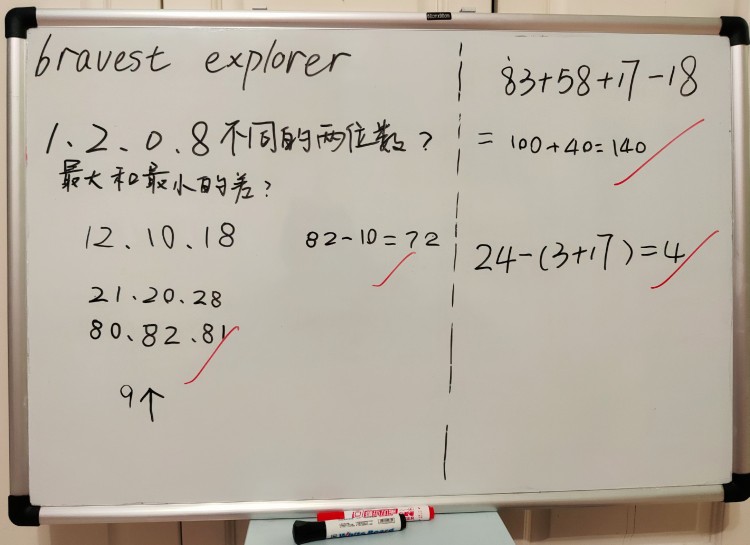 bravest explorer
1、2、0、8不同的两位数？
最大和最小的差？
12、10、18
82-10=72
21.20、28
80、82、81
9个
83+58+17-18
=100+40=140
24-(3+17)=4